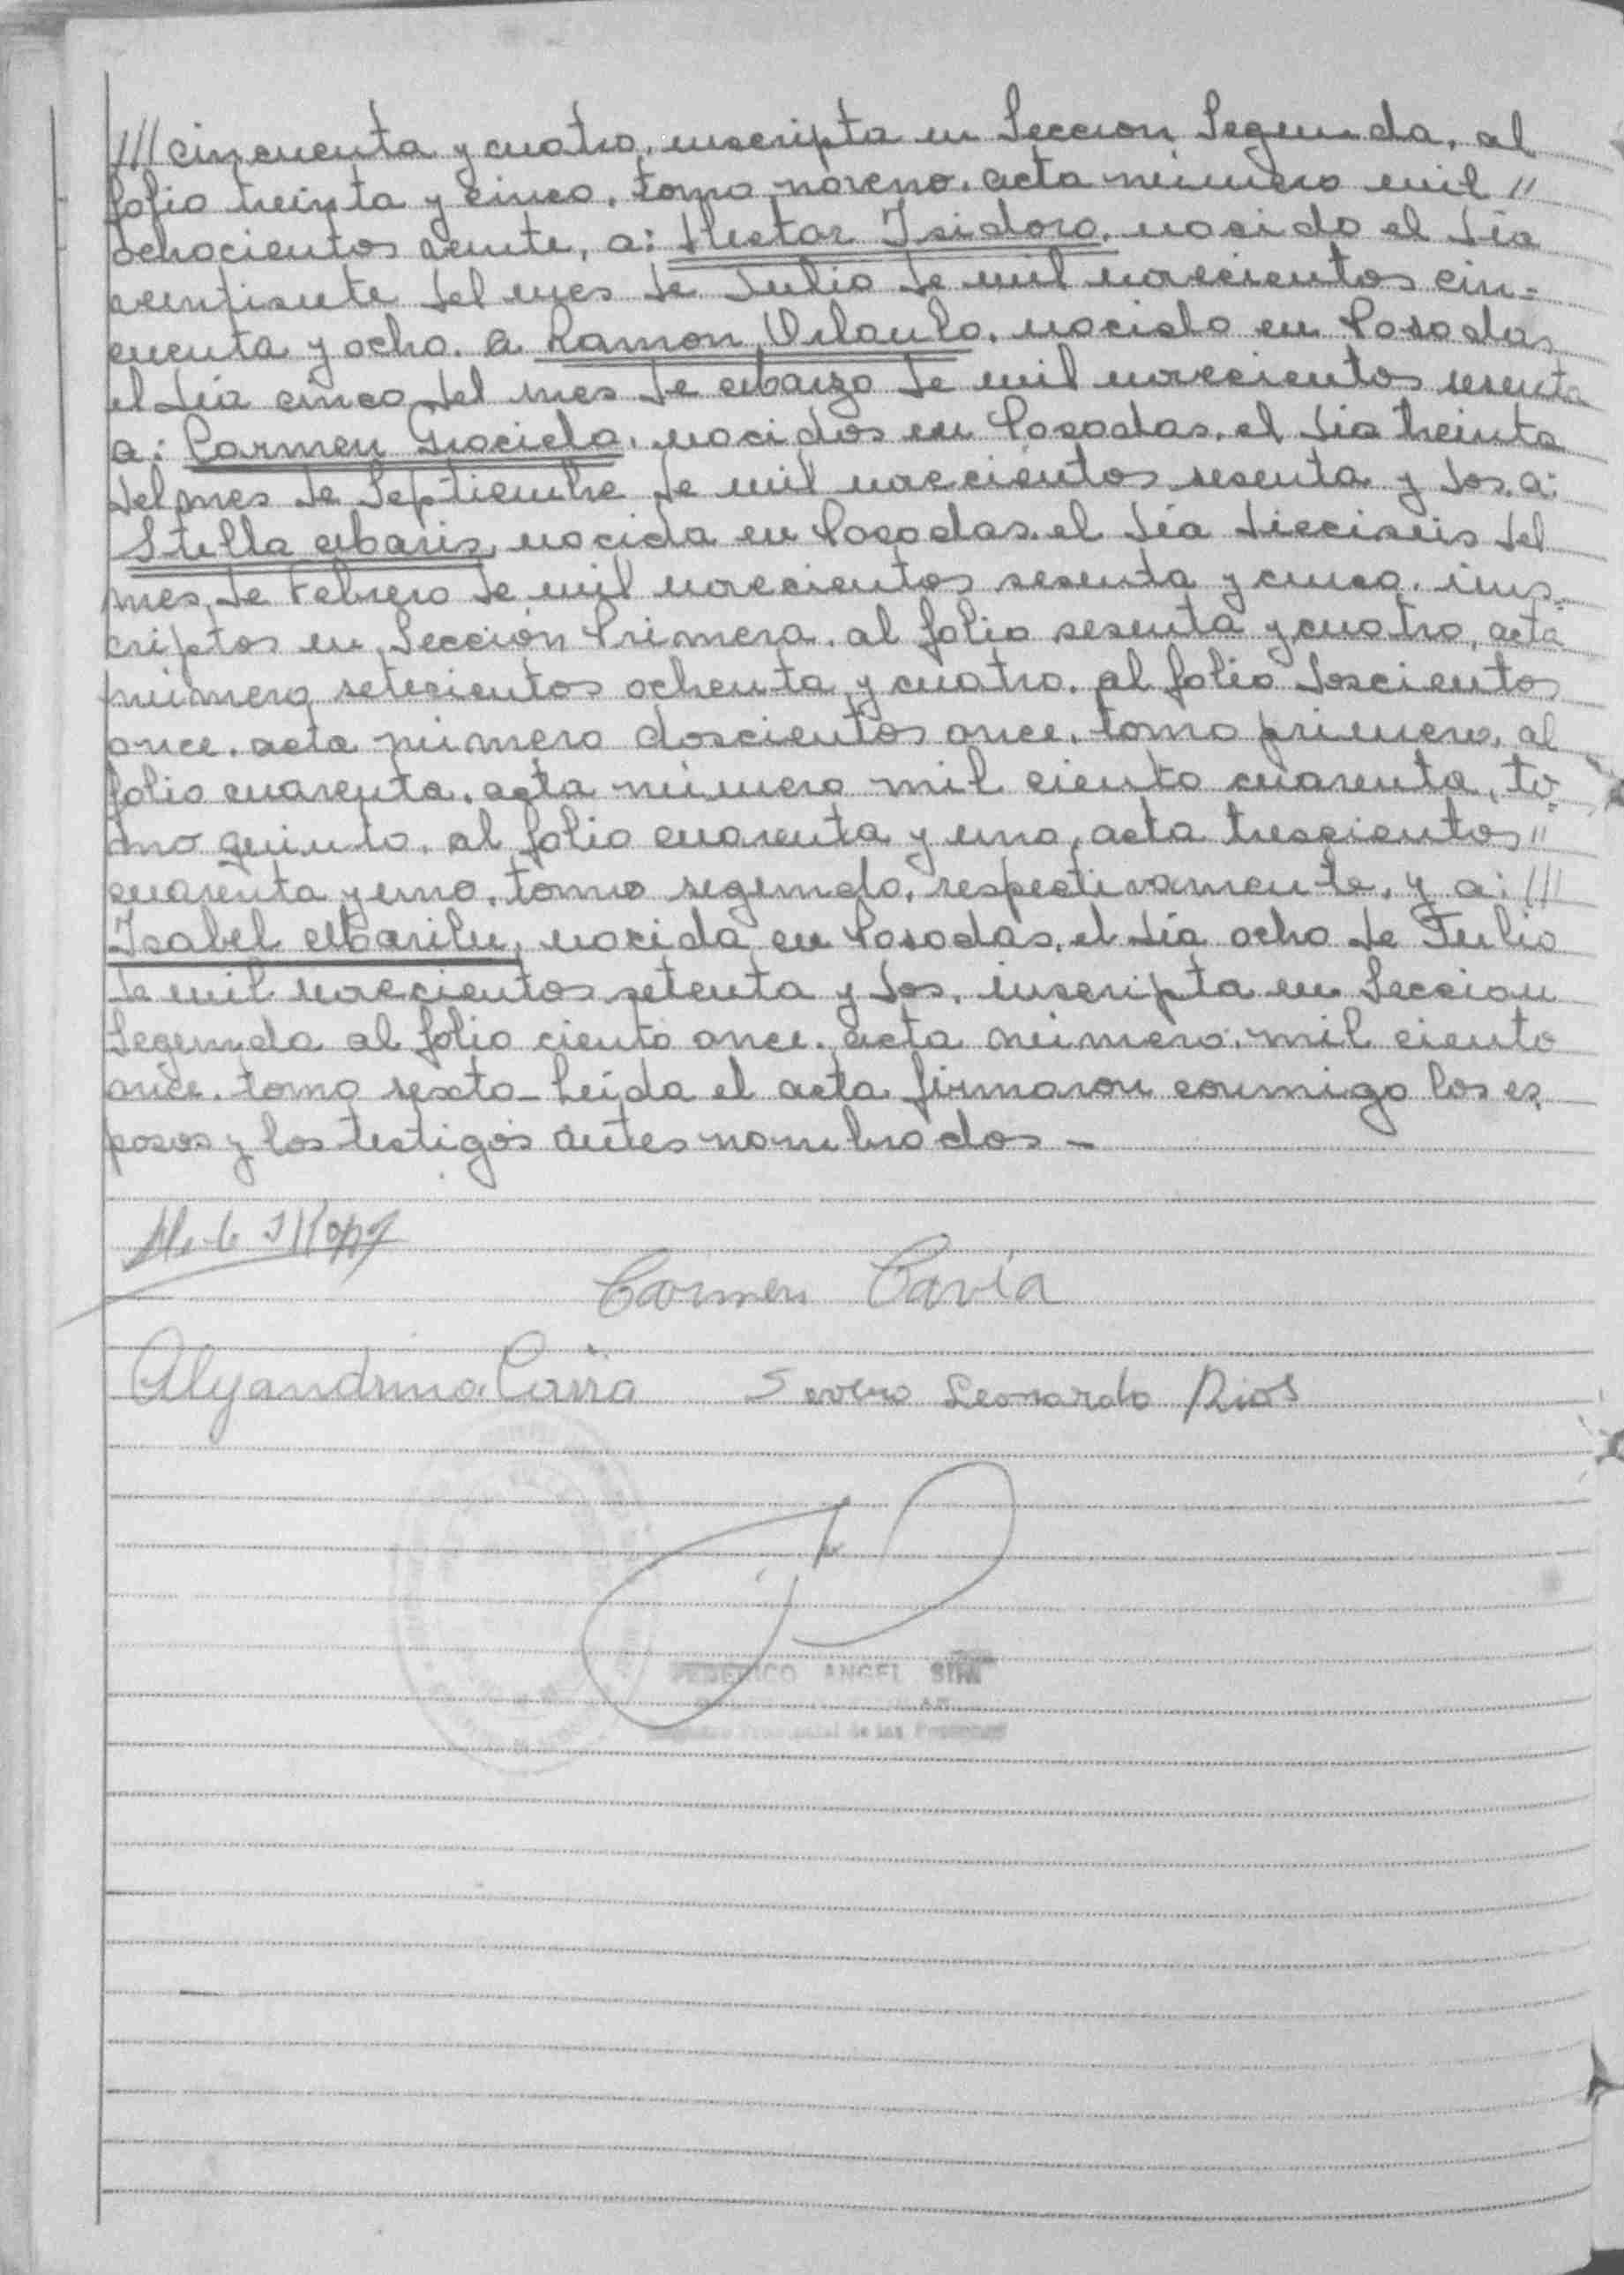 /// cincuenta y cuatro, inscripta en Sección Segunda, al
folio treinta y cinco, tomo noveno, acta número mil //
ochocientos veinte, a: Hector Isidoro, nacido el día
veintisiete del mes de Julio de mil novecientos cin=
cuenta y ocho. a Ramon Orlando, nacido en Posadas
el día cinco del mes de Marzo de mil novecientos sesenta
a: Carmen Graciela, nacidos en Posadas, el día treinta
del mes de Septiembre de mil novecientos sesenta y dos, a:
Stella Maris, nacida en Posadas, el día dieciseis del
mes de Febrero de mil novecientos sesenta y cinco, ins=
criptos en Sección Primera, al folio sesenta y cuatro, acta
número setecientos ochenta y cuatro, al folio doscientos
once, acta número doscientos once, tomo primero, al
folio cuarenta, acta número mil ciento cuarenta, to=
mo quinto, al folio cuarenta y uno, acta trescientos //
cuarenta y uno, tomo segundo, respectivamente, y a: ///
Isabel Marilu, nacida en Posadas, el día ocho de Julio
de mil novecientos setenta y dos, inscripta en Seccion
Segunda al folio ciento once, acta número, mil ciento
once, tomo sexto_ Leída el acta firmaron conmigo los es
posos y los testigos antes nombrados -
Carmen Cavia
Severo Leonardo Rios
FEDERICO ANGEL
Provincial de las Personas